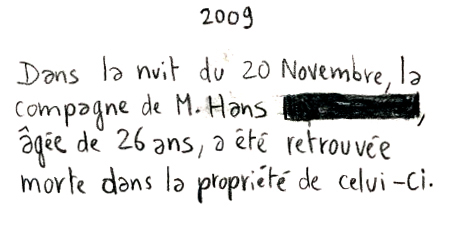 2009
Dans la nuit du 20 Novembre, la
compagne de M. Hans ,
âgée de 26 ans, a été retrouvée
morte dans la propriété de celui-ci.